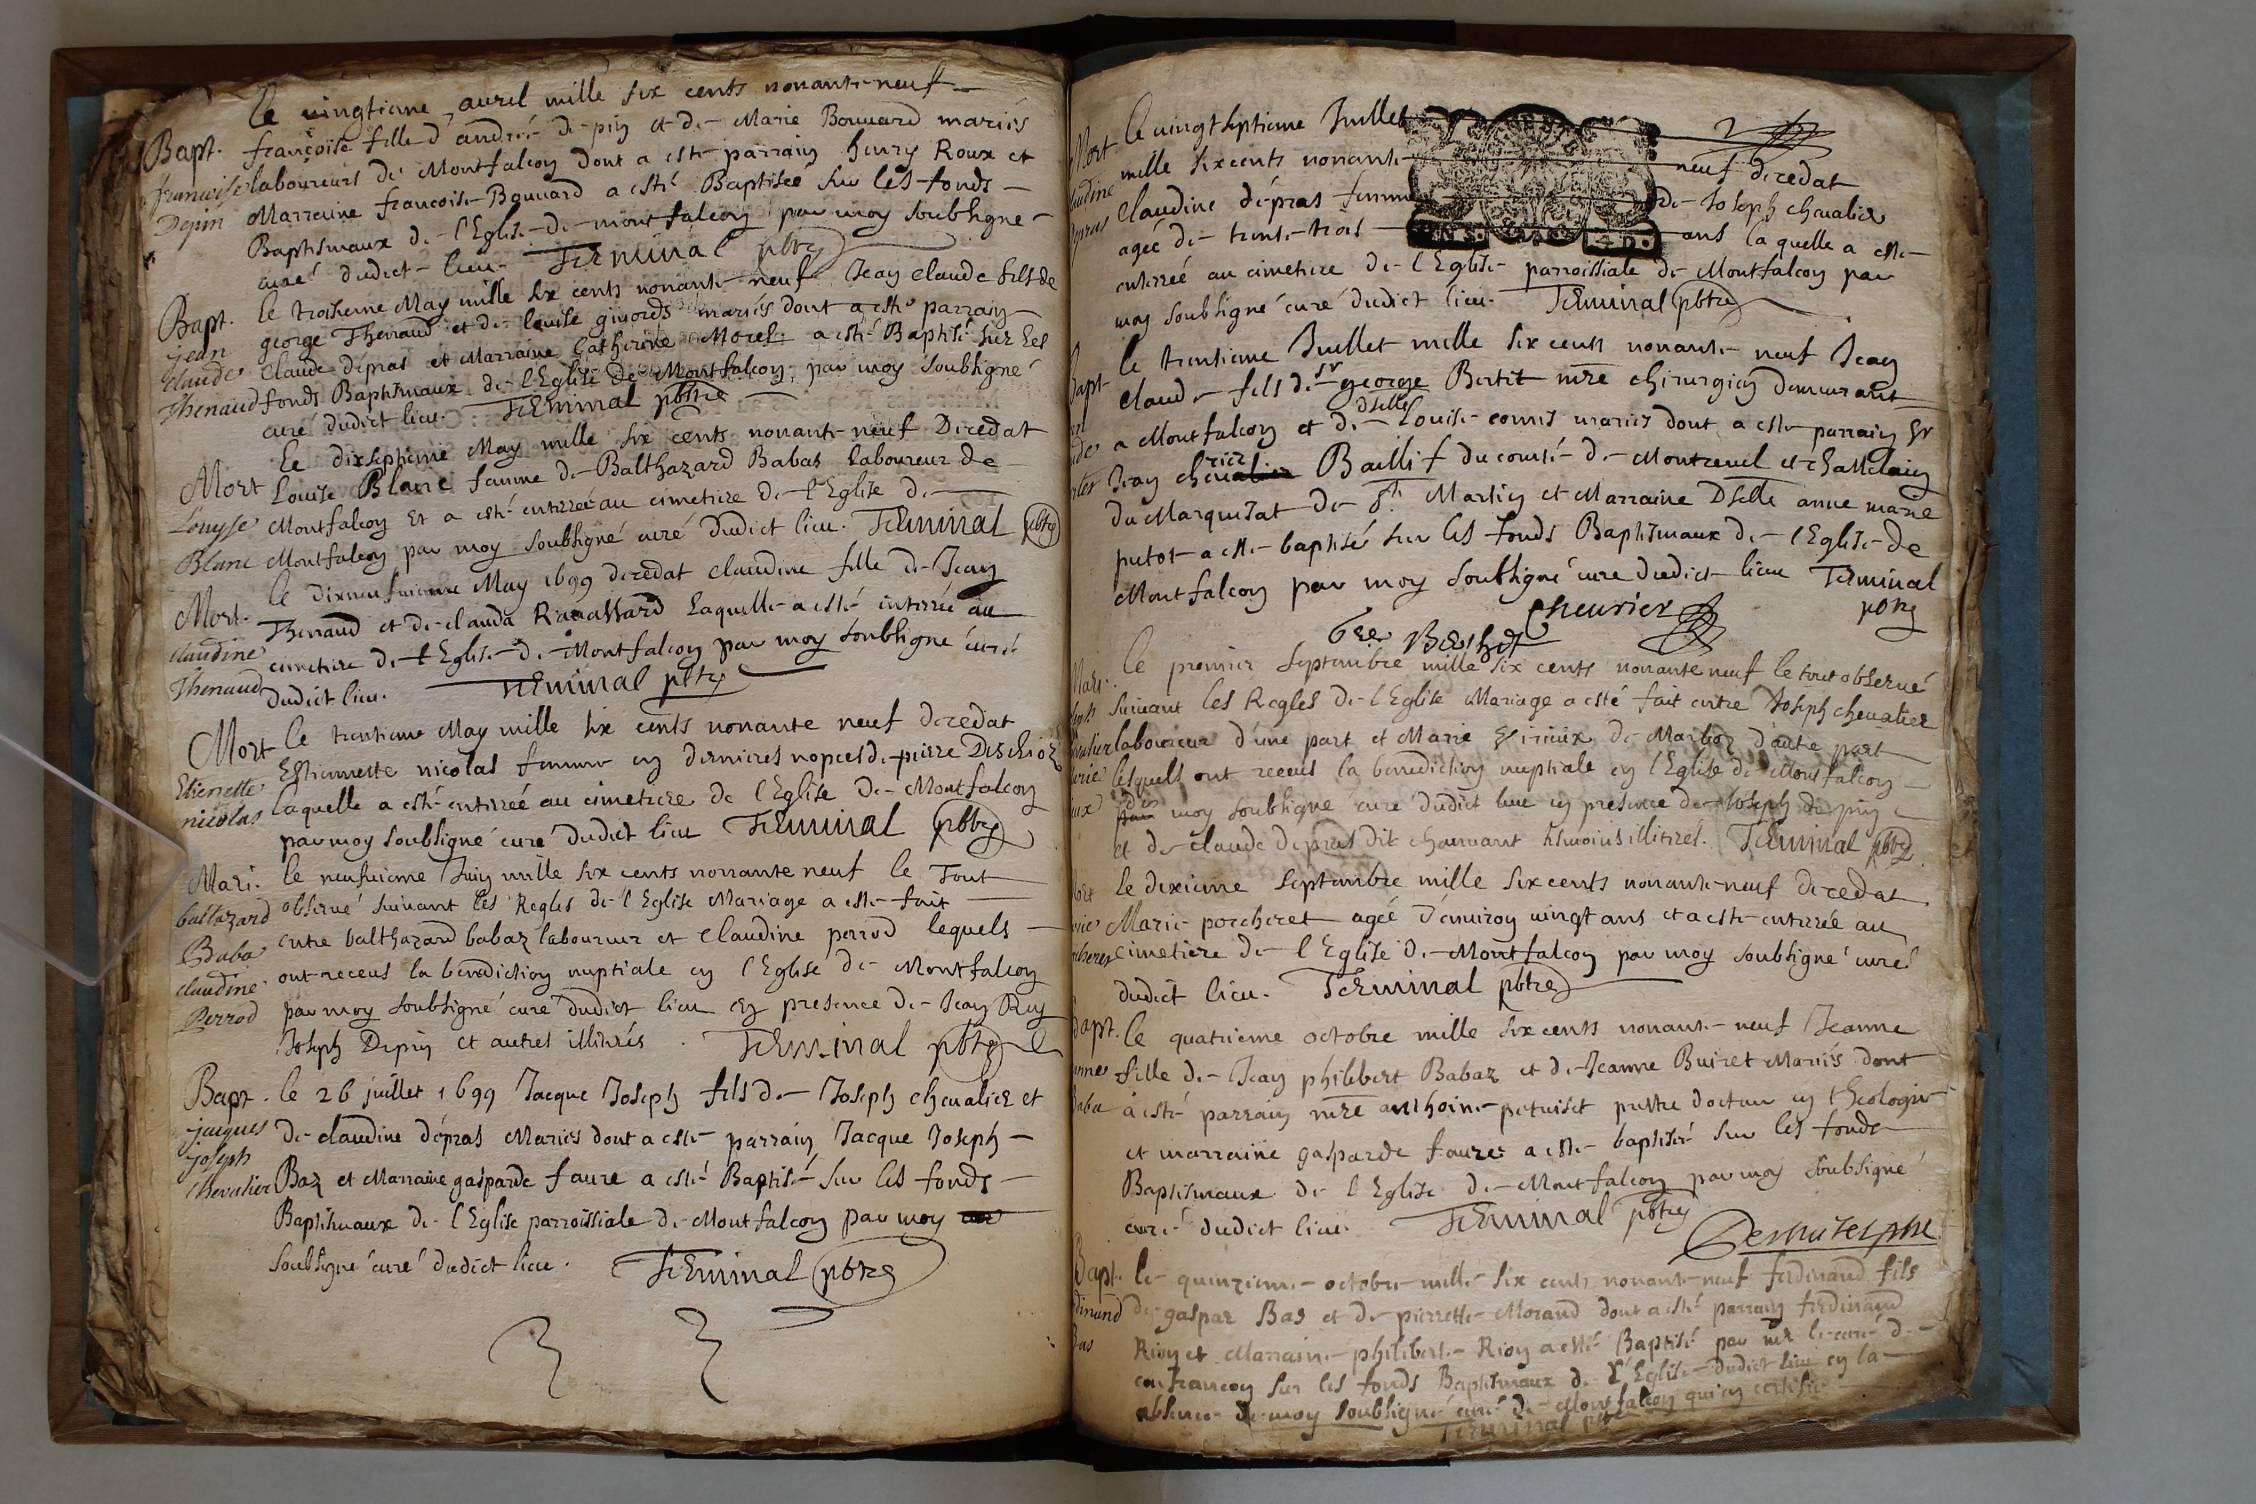 le vingtieme avril mille six cents nonante-neuf
Bapt. françoise fille d'andrée de-pin et de-Marie Bouvard mariés
francoise laboureurs de Montfalcon dont a esté parrain henry Roux et
Depin Marraine francoise-Bouvard a esté Baptiseé sur les-fonds-
Baptismaux de-l'Eglise-de-montfalcon par moy soubsigné-
curé dudict-lieu. Terminal pbtre
Bapt. le troisieme May mille six cents nonante-neuf Jean claude fils de
jean george Thenaud et de-louise givords mariés dont a esté parrain
claude claude dépras et Marraine Catherine Morel a esté Baptisé sur les
Thenaud fonds Baptismaux de-l'Eglise de Montfalcon, par moy soubsigné
curé dudict lieu. Terminal pbtre
le dixseptieme May mille six cents nonante-neuf Decedat
Mort Louise Blanc femme de-Balthazard Babas laboureur de
Louyse Montfalcon et a esté enterrée au cimetiere de-l'Eglise de-
Blanc Montfalcon par moy soubsigné curé dudict lieu. Terminal pbtre
le dixneufvieme May 1699 decedat claudine fille de-Jean
Mort. Thenaud et de-clauda Ravassard Laquelle a esté enterrée au
claudine cimetiere de-l'Eglise-de-Montfalcon par moy soubsigné curé
Thenaud dudict lieu. Terminal pbtre
Mort le trentieme May mille six cents nonante neuf decedat
Estiennette nicolas femme en dernieres nopces de-pierre Deschioz
Etienette laquelle a esté enterrée au cimetiere de l'Eglise de-Montfalcon
nicolas par moy soubsigné curé dudict lieu Terminal pbtre
Mari. le neufvieme Juin mille six cents nonante neuf le Tout
baltazard observé suivant les Regles de-l'Eglise Mariage a esté-fait
Baba entre balthazard babaz laboureur et claudine perrod lequels-
claudine ont-receus la benediction nuptiale en l'Eglise de-Montfalcon
Perrod par moy soubsigné curé dudict lieu en presence de-Jean Ruy
Joseph Depin et autres illitrés. Terminal pbtre
Bapt. le 26 juillet 1699 Jacque Joseph fils de-Joseph chevalier et
jacques de claudine dépras Mariés dont a esté-parrain Jacque Joseph-
joseph
chevalier Baz et Marraine gasparde faure a esté Baptisé-sur les fonds-
Baptismaux de-l'Eglise parroissiale de-Montfalcon par moy
soubsigné curé dudict lieu. Terminal pbtre
Mort le vingt septieme Juillet
mille six cents nonante- neuf decedat
claudine dépras femme de-Joseph chevalier
agée de-trente-trois- ans laquelle a esté-
enterrée au cimetiere de-l'Eglise-parroissiale de-Montfalcon par
moy soubsigné curé dudict lieu. Terminal pbtre
le trentieme Juillet mille six cents nonante-neuf Jean
claude-fils de sr george Bertet mre chirurgien demeurant
a Montfalcon et de-dselle Louise-cornis mariés dont a esté-parrain sr
Jean chevrier Baillif du comté de-Montreuil et chastelain
du Marquisat de-St. Martin et Marraine Dselle anne marie
putot-a esté-baptisé sur les fonds Baptismaux de-l'Eglise-de
Montfalcon par moy soubsigné curé dudict lieu Terminal
Chevrier pbtre
le premier septembre mille six cents nonante neuf le tout observé
Mari. suivant les Regles de-l'Eglise Mariage a esté fait entre Joseph chevalier
laboureur d'une part et Marie de-Marboz d'autre part
lesquels ont receus la benediction nuptiale en l'Eglise de-Montfalcon-
de moy soubsigné curé dudict lieu en presence de-Joseph de-pin
et de-claude depras dit charmant tesmoins illitrés. Terminal pbtre
le dixieme septembre mille six cents nonante-neuf decedat
Marie-porcheret agée d'environ vingt ans et a esté-enterrée au
cimetiere de-l'Eglise de-Montfalcon par moy soubsigné curé
dudict lieu. Terminal pbtre
Bapt. le quatrieme octobre mille six cents nonante-neuf Jeanne
fille de-Jean philibert Babaz et de-Jeanne Buiret Mariés dont
a esté parrain mre anthoine-petuiset prestre docteur en theologie
et marraine gasparde faure a esté-baptisée sur les fonds
Baptismaux de-l'Eglise de-Montfalcon par moy soubsigné
curé dudict lieu. Terminal pbtre
Bapt. le-quinzieme-octobre-mille-six cents nonante-neuf ferdinand fils
de-gaspar Bas et de-pierrette-Morand dont a esté parrain ferdinand
Rion et Marraine-philiberte-Rion a esté Baptisé par mre le-curé de-
confrancon sur les fonds Baptismaux de-l'Eglise-dudict lieu en la-
absence de-moy soubsigné curé de-Montfalcon qui en certifie
Terminal